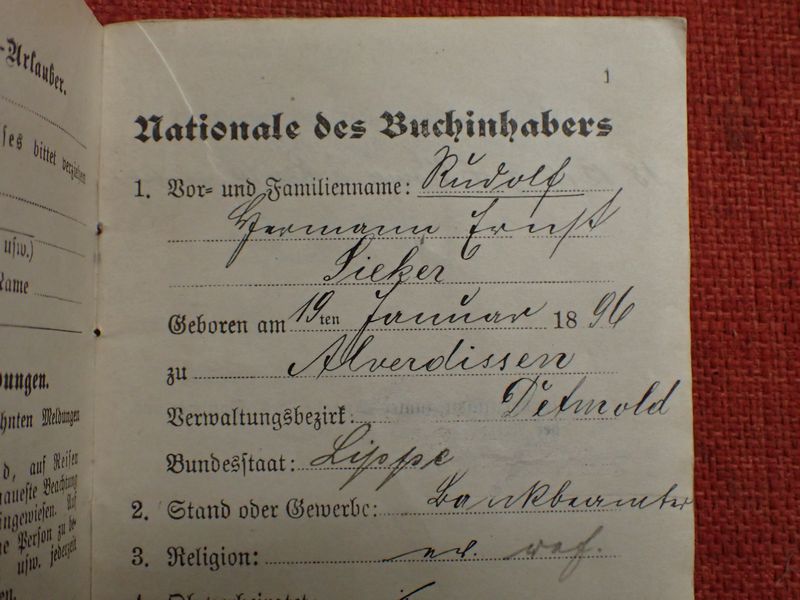 -Urlauber.
ses bittet verziehen
usw.)
Name
dungen.
hnten Meldungen
d, auf Reisen
naueste Beachtung
ingewiesen. Auf
ne Person zu be-
usw. jederzeit
en.
1
Nationale des Buchinhabers
1. Vor- und Familienname: Rudolf
Hermann Ernst
Sieker
Geboren am 19ten Januar 1896
zu Alverdissen
Verwaltungsbezirk: Detmold
Bundesstaat: Lippe
2. Stand oder Gewerbe: Bankbeamter
3. Religion: ev. ref.